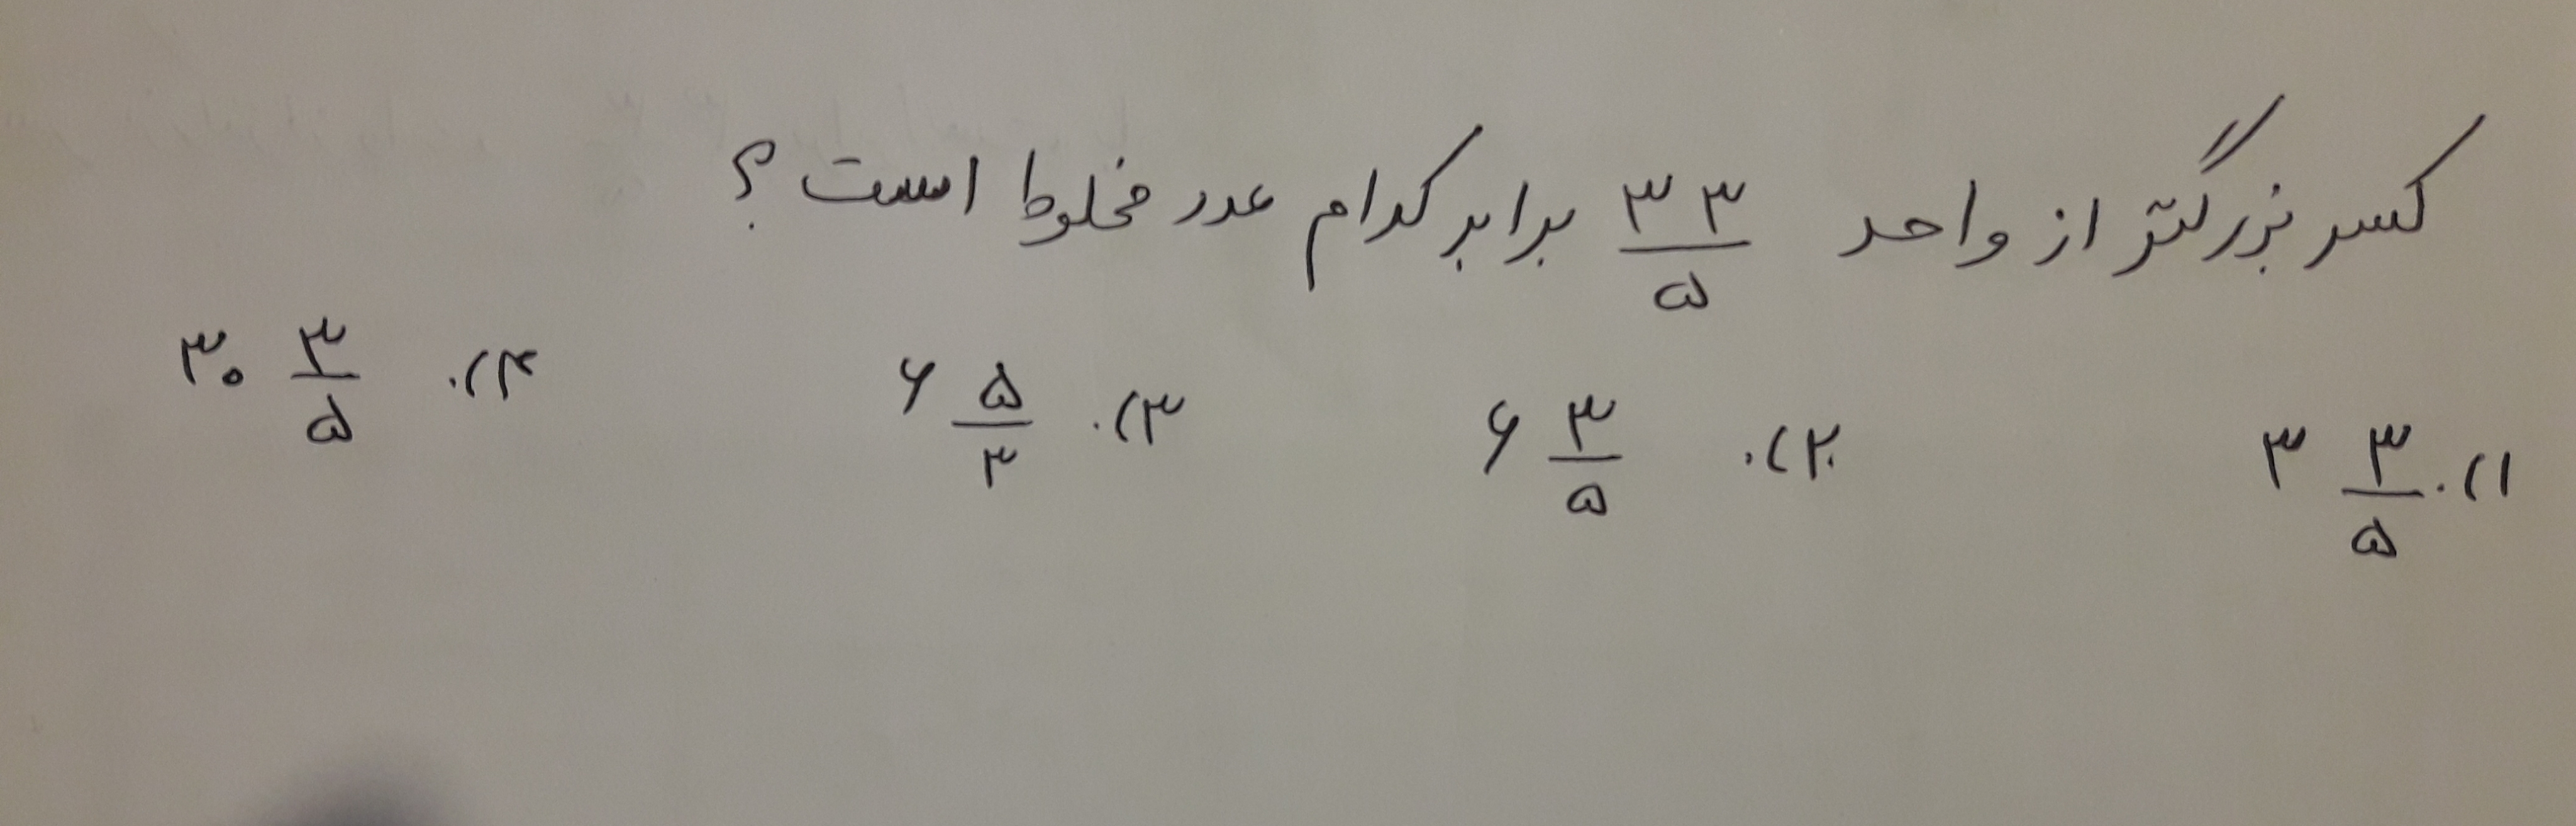 کسر بزرگتر از واحد ۳۳/۵ برابر کدام عدد مخلوط است؟
۱). ۳ ۳/۵ ۲). ۶ ۳/۵ ۳). ۶ ۵/۳ ۴). ۳۰ ۳/۵